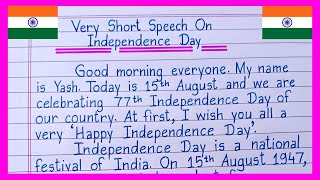 Very Short Speech On
Independence Day
Good morning everyone. My name
is Yash. Today is 15th August and we are
celebrating 77th Independence Day of
our country. At first, I wish you all a
very 'Happy Independence Day'.
Independence Day is a national
festival of India. On 15th August 1947,